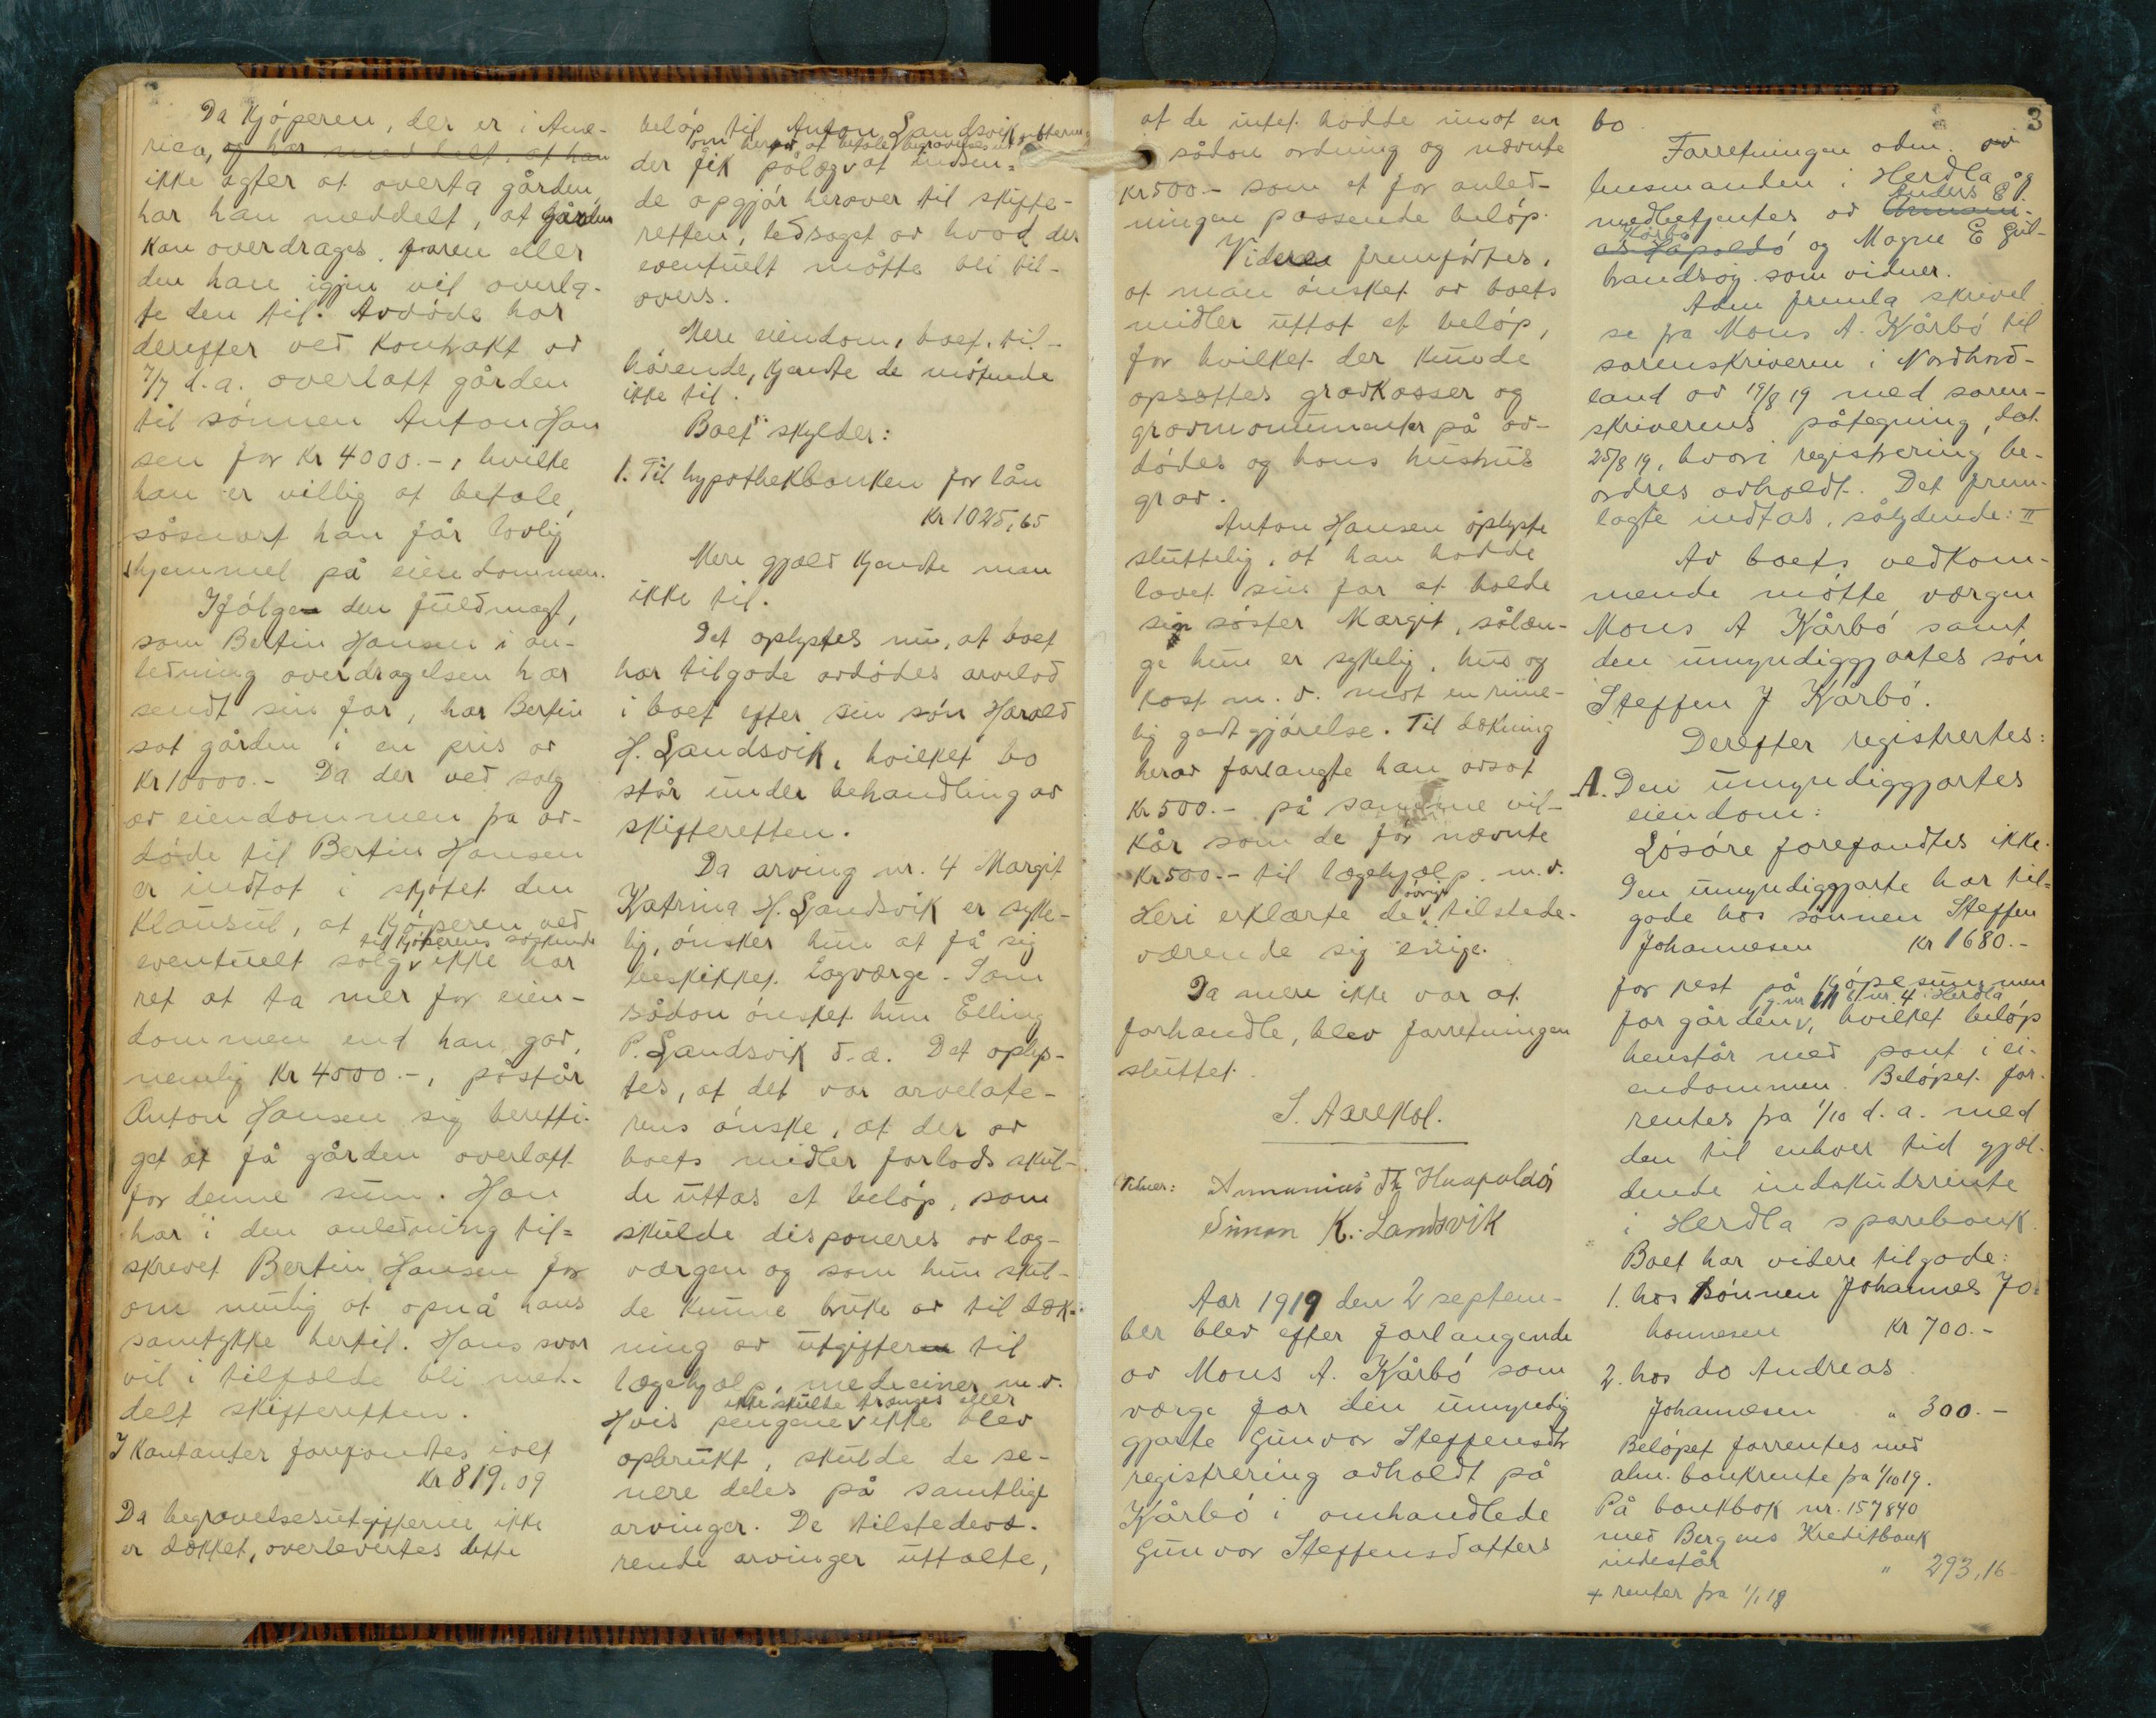 Da Kjøperen, der er i Ame-
rica, og har meddelt, at han
ikke agter at overta gården,
har han meddelt, at gården
kan overdrages faren eller
den han igjen vil overla-
te den til. Avdøde har
derefter ved kontrakt av
7/7 d.a. overlatt gården
til sønnen Anton Han
sen for kr 4000.-, hvilke
han er villig at betale,
såsnart han får lovlig
hjemmel på eiendommen.
Ifølge den fuldmagt,
som Bertin Hansen i an-
ledning overdragelsen har
sendt sin far, har Bertin
sat gården i en pris av
kr 10000.- Da der ved salg
av eiendommen fra av-
døde til Bertin Hansen
er indtat i skjøtet den
klausul, at kjøperen ved
til kjøperens søskende
eventuelt salg v ikke har
ret at ta mer for eien-
dommen end han gav,
nemlig kr 4000.-, påstår
Anton Hansen sig beretti-
get at få gården overlatt
for denne sum. Han
har i den anledning til-
skrevet Bertin Hansen for
om mulig at opnå hans
samtykke hertil. Hans svar
vil i tilfælde bli med-
delt skifteretten.
I kontanter forefandtes ialt
kr 819,09
Da begravelsesutgifterne ikke
er dækket, overlevertes dette
beløp til Anton Landsvik
om herav at betale begravelsesutgifterne
der fik pålæg v at indsen-
de opgjør herover til skifte-
retten, ledsaget av hvad der
eventuelt måtte bli til-
overs.
Mere eiendom, boet til-
hørende, kjendte de møtende
ikke til.
Boet skylder:
1. Til hypothekbanken for lån
kr 1025,65
Mere gjæld kjendte man
ikke til.
Det oplystes nu, at boet
har tilgode avdødes arvelod
i boet efter sin søn Harald
H. Landsvik, hvilket bo
står under behandling av
skifteretten.
Da arving nr. 4 Margit
Katrina H. Landsvik er syke-
lig, ønsker hun at få sig
beskikket lagværge. Som
sådan ønsket hun Elling
P. Landsvik d.a. Det oplys-
tes, at det var arvelate-
rens ønske, at der av
boets midler forlods skul-
de uttas et beløp, som
skulde disponeres av lag-
værgen og som hun skul-
de kunne bruke av til dæk-
ning av utgifter til
lægehjælp, mediciner m.v.
ikke skulde trænges eller
Hvis pengene v ikke blev
opbrukt, skulde de se-
nere deles på samtlige
arvinger. De tilstedevæ-
rende arvinger uttalte,
at de intet hadde imot en
sådan ordning og nævnte
kr 500.- som et for anled-
ningen passende beløp.
Videre fremførtes,
at man ønsket av boets
midler uttat et beløp,
for hvilket der kunde
opsættes gravkasser og
gravmonumenter på av-
dødes og hans hustrus
grav.
Anton Hansen oplyste
sluttelig, at han hadde
lovet sin far at holde
sin søster Margit, sålæn-
ge hun er sykelig, hus og
kost m.v. mot en rime-
lig godtgjørelse. Til dækning
herav forlangte han avsat
kr 500.- på samme vil-
kår som de før nævnte
kr 500.- til lægehjælp m.v.
øvrige
Heri erklærte de v tilstede-
værende sig enige.
Da mere ikke var at
forhandle, blev forretningen
sluttet.
S. Aarekol.
Vidner: Ammunias Th Haapoldø
Simon K. Landsvik
Aar 1919 den 2 septem-
ber blev efter forlangende
av Mons A. Kårbø som
værge for den umyndig
gjorte Gunvor Steffensdtr
registrering avholdt på
Kårbø i omhandlede
Gunvor Steffensdatters
3
bo.
Forretningen adm. av
lensmanden i Herdla og
Anders E.
medbetjentes av Ammuni-
Kårbø
as Hapoldø og Magne E Gul-
brandsøy som vidner.
Adm fremla skrivel
se fra Mons A. Kårbø til
sorenskriveren i Nordhord-
land av 19/8 19 med soren-
skriverens påtegning, dat
25/8 19, hvori registrering be-
ordres avholdt. Det frem-
lagte indtas, sålydende: II
Av boets vedkom-
mende møtte værgen
Mons A Kårbø samt
den umyndiggjortes søn
Steffen J Kårbø.
Derefter registrertes:
A. Den umyndiggjortes
eiendom:
Løsøre forefandtes ikke.
Den umyndiggjorte har til-
gode hos sønnen Steffen
Johannesen kr 1680.-
for rest på kjøpesummen
g.nr b.nr. 4 i Herdla
for gården v, hvilket beløp
henstår med pant i ei-
endommen. Beløpet for-
rentes fra 1/10 d.a. med
den til enhver tid gjæl-
dende indskudsrente
i Herdla sparebank.
Boet har videre tilgode:
1. hos sønnen Johannes Jo-
hannesen kr 700.-
2. hos do Andreas
Johannesen " 300.-
Beløpet forrentes med
alm. bankrente fra 1/10 19.
På bankbok nr. 157840
med Bergens Kreditbank
indestår " 293,16
+ renter fra 1/1 18